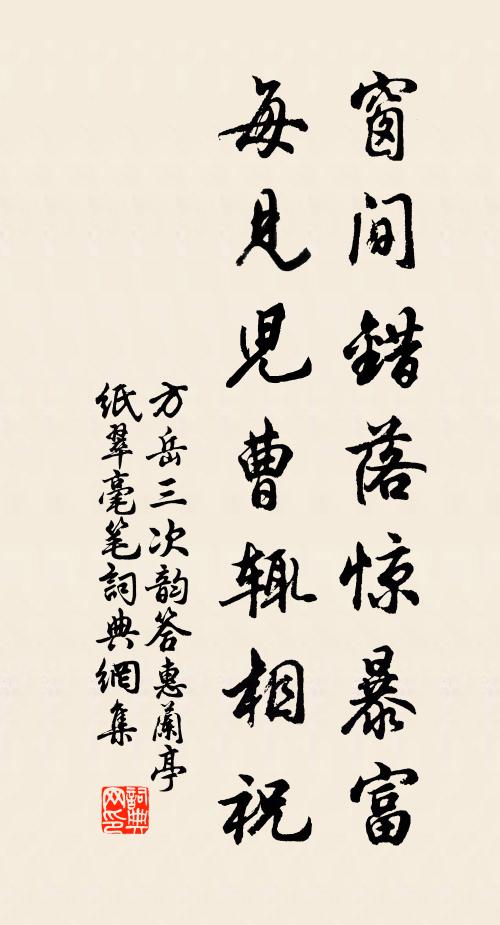 窗间錯落惊暴富
每見児曹辄相祝
方岳三次韵答惠蘭亭
纸翠毫笔詞典網集
詞典网印